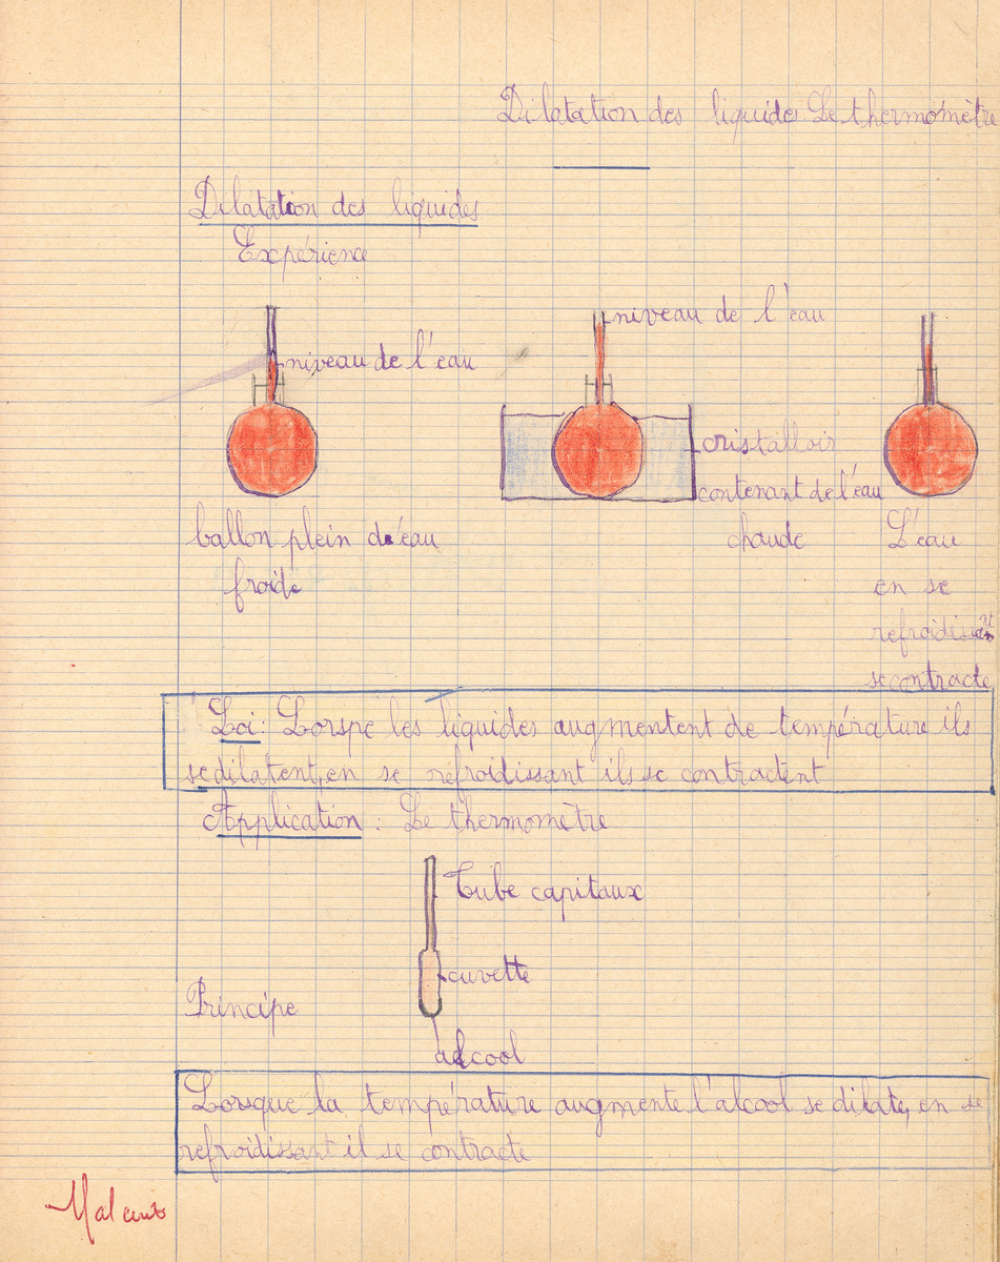 Dilatation des liquides Le thermomètre
Dilatation des liquides
Expérience
niveau de l'eau
niveau de l'eau
cristalloir
contenant de l'eau
chaude
ballon plein d'eau
froide
L'eau
en se
refroidissant
se contracte
Loi : Lorspe les liquides augmentent de température ils
se dilatent, en se refroidissant ils se contractent
Application : Le thermomètre
Tube capitaux
cuvette
Principe
alcool
Lorsque la température augmente l'alcool se dilate, en se
refroidissant il se contracte
Mal écrit